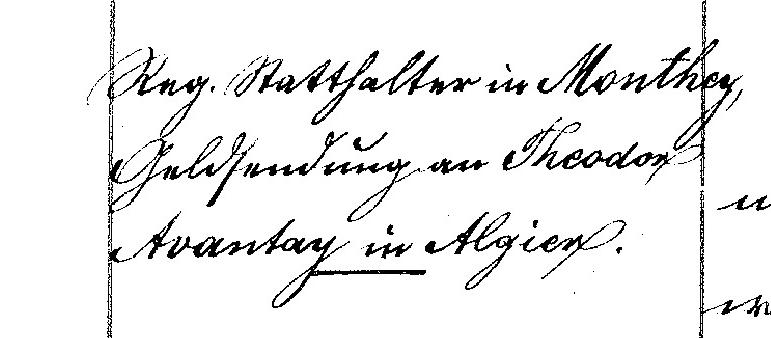 Reg. Statthalter in Monthey,
Geldsendung an Theodor
Avantay in Algier.